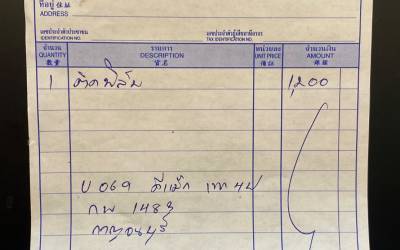 ที่อยู่ 住址
ADDRESS
เลขประจำตัวประชาชน เลขประจำตัวผู้เสียภาษีอากร
IDENTIFICATION NO. TAX IDENTIFICATION NO.
จำนวน รายการ หน่วยละ จำนวนเงิน
QUANTITY DESCRIPTION UNIT PRICE AMOUNT
數量 貨名 價銀
1 ติดฟิล์ม 1,200
บ 069 ดีแม็ก เทา 4ป
กพ 1483
กาญจนบุรี